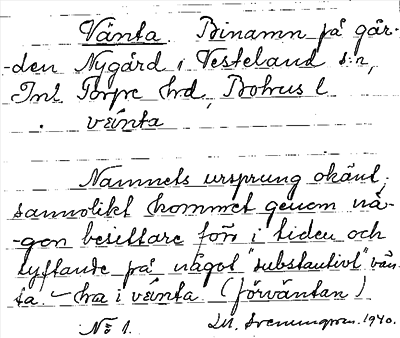 Vänta. Binamn på går-
-den Nygård i Vesteland s:n,
Inl Torpe hd, Bohus l
veinta
Namnets ursprung okänt,
sannolikt kommet genom nå-
-gon besittare förr i tiden och
syftande på något "substantivt" vän-
ta. – ha i veinta (förväntan)
No 1. 1940.